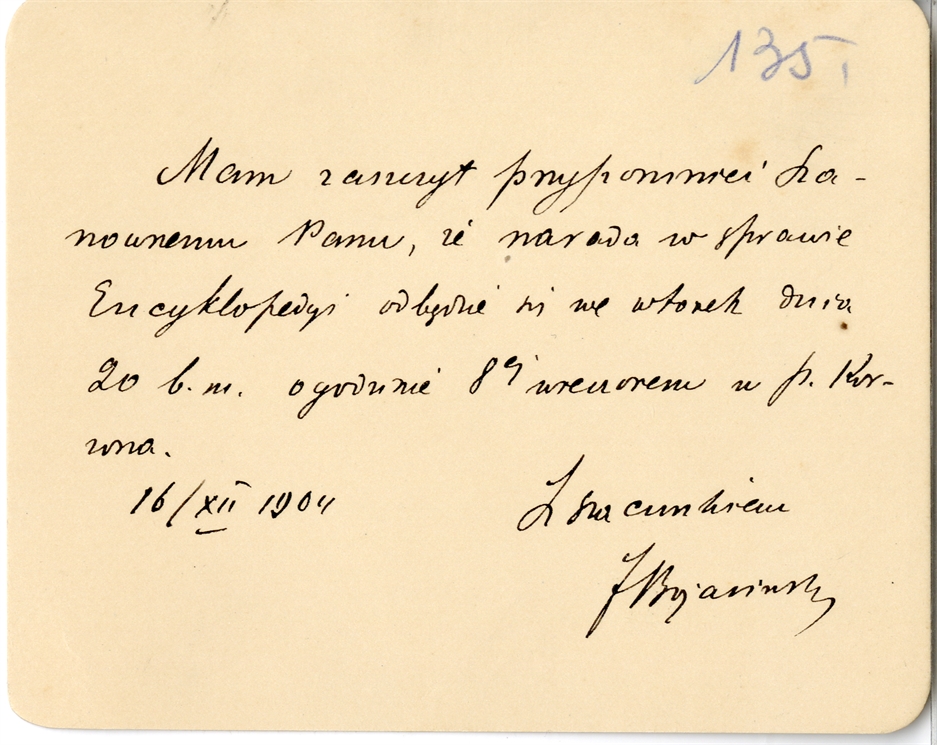 135
Mam zaszczyt przypomnieć Sza-
nownemu Panu, że narada w sprawie
Encyklopedyi odbędzie się we wtorek dnia
20 b.m. o godzinie 8ej wieczorem u p. Kor-
wina.
16/XII 1904
Z szacunkiem